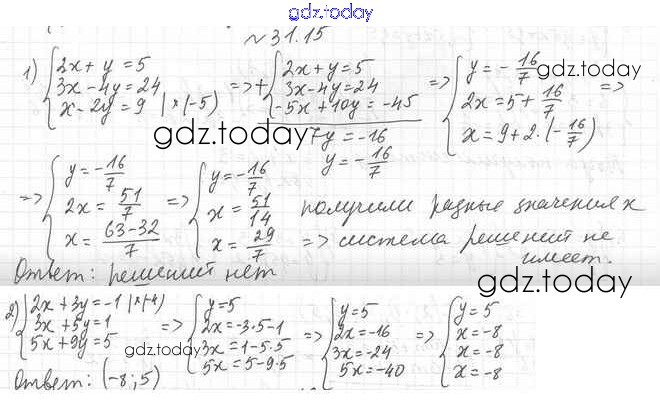 gdz.today
№31.15
1) { 2x + y = 5
3x - 4y = 24
x - 2y = 9 | ×(-5)
=> + { 2x + y = 5
3x - 4y = 24
-5x + 10y = -45
7y = -16
y = -16/7
=> { y = -16/7
2x = 5 + 16/7
x = 9 + 2·(-16/7)
=>
gdz.today
gdz.today
=> { y = -16/7
2x = 51/7
x = 63-32/7
=> { y = -16/7
x = 51/14
x = 29/7
получили разные значения x
=> система решений не
имеет.
Ответ: решений нет
gdz.today
2) { 2x + 3y = -1 | ×(-4)
3x + 5y = 1
5x + 9y = 5
=> { y = 5
2x = -3·5-1
3x = 1-5·5
5x = 5-9·5
=> { y = 5
2x = -16
3x = -24
5x = -40
=> { y = 5
x = -8
x = -8
x = -8
gdz.today
gdz.today
Ответ: (-8; 5)